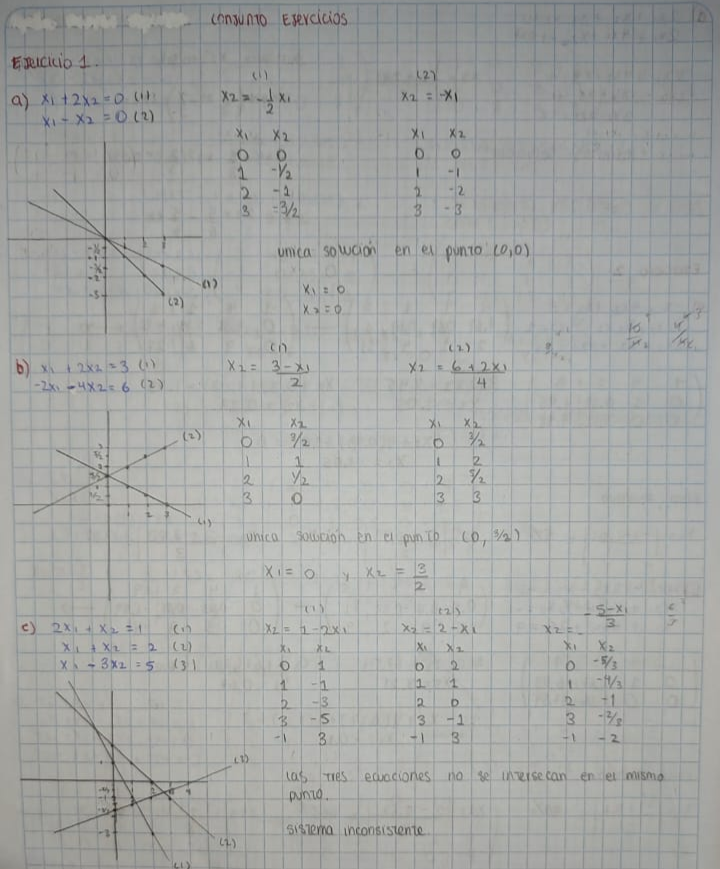 CONJUNTO EJERCICIOS
EJERCICIO 1.
a) x1 + 2x2 = 0 (1)
x1 - x2 = 0 (2)
(1)
x2 = -1/2 x1
x1 x2
0 0
1 -1/2
2 -1
3 -3/2
(2)
x2 = -x1
x1 x2
0 0
1 -1
2 -2
3 -3
(1)
(2)
unica solución en el punto (0,0)
x1 = 0
x2 = 0
b) x1 + 2x2 = 3 (1)
-2x1 - 4x2 = 6 (2)
(1)
x2 = 3-x1/2
x1 x2
0 3/2
1 1
2 1/2
3 0
(2)
x2 = 6+2x1/4
x1 x2
0 3/2
1 2
2 5/2
3 3
(2)
(1)
unica solución en el punto (0, 3/2)
x1 = 0 y x2 = 3/2
c) 2x1 + x2 = 1 (1)
x1 + x2 = 2 (2)
x1 - 3x2 = 5 (3)
(1)
x2 = 1-2x1
x1 x2
0 1
1 -1
2 -3
3 -5
-1 3
(2)
x2 = 2-x1
x1 x2
0 2
1 1
2 0
3 -1
-1 3
x2 = - 5-x1/3
x1 x2
0 -5/3
1 -4/3
2 -1
3 -2/3
-1 -2
(3)
(2)
(1)
las tres ecuaciones no se intersecan en el mismo
punto.
sistema inconsistente